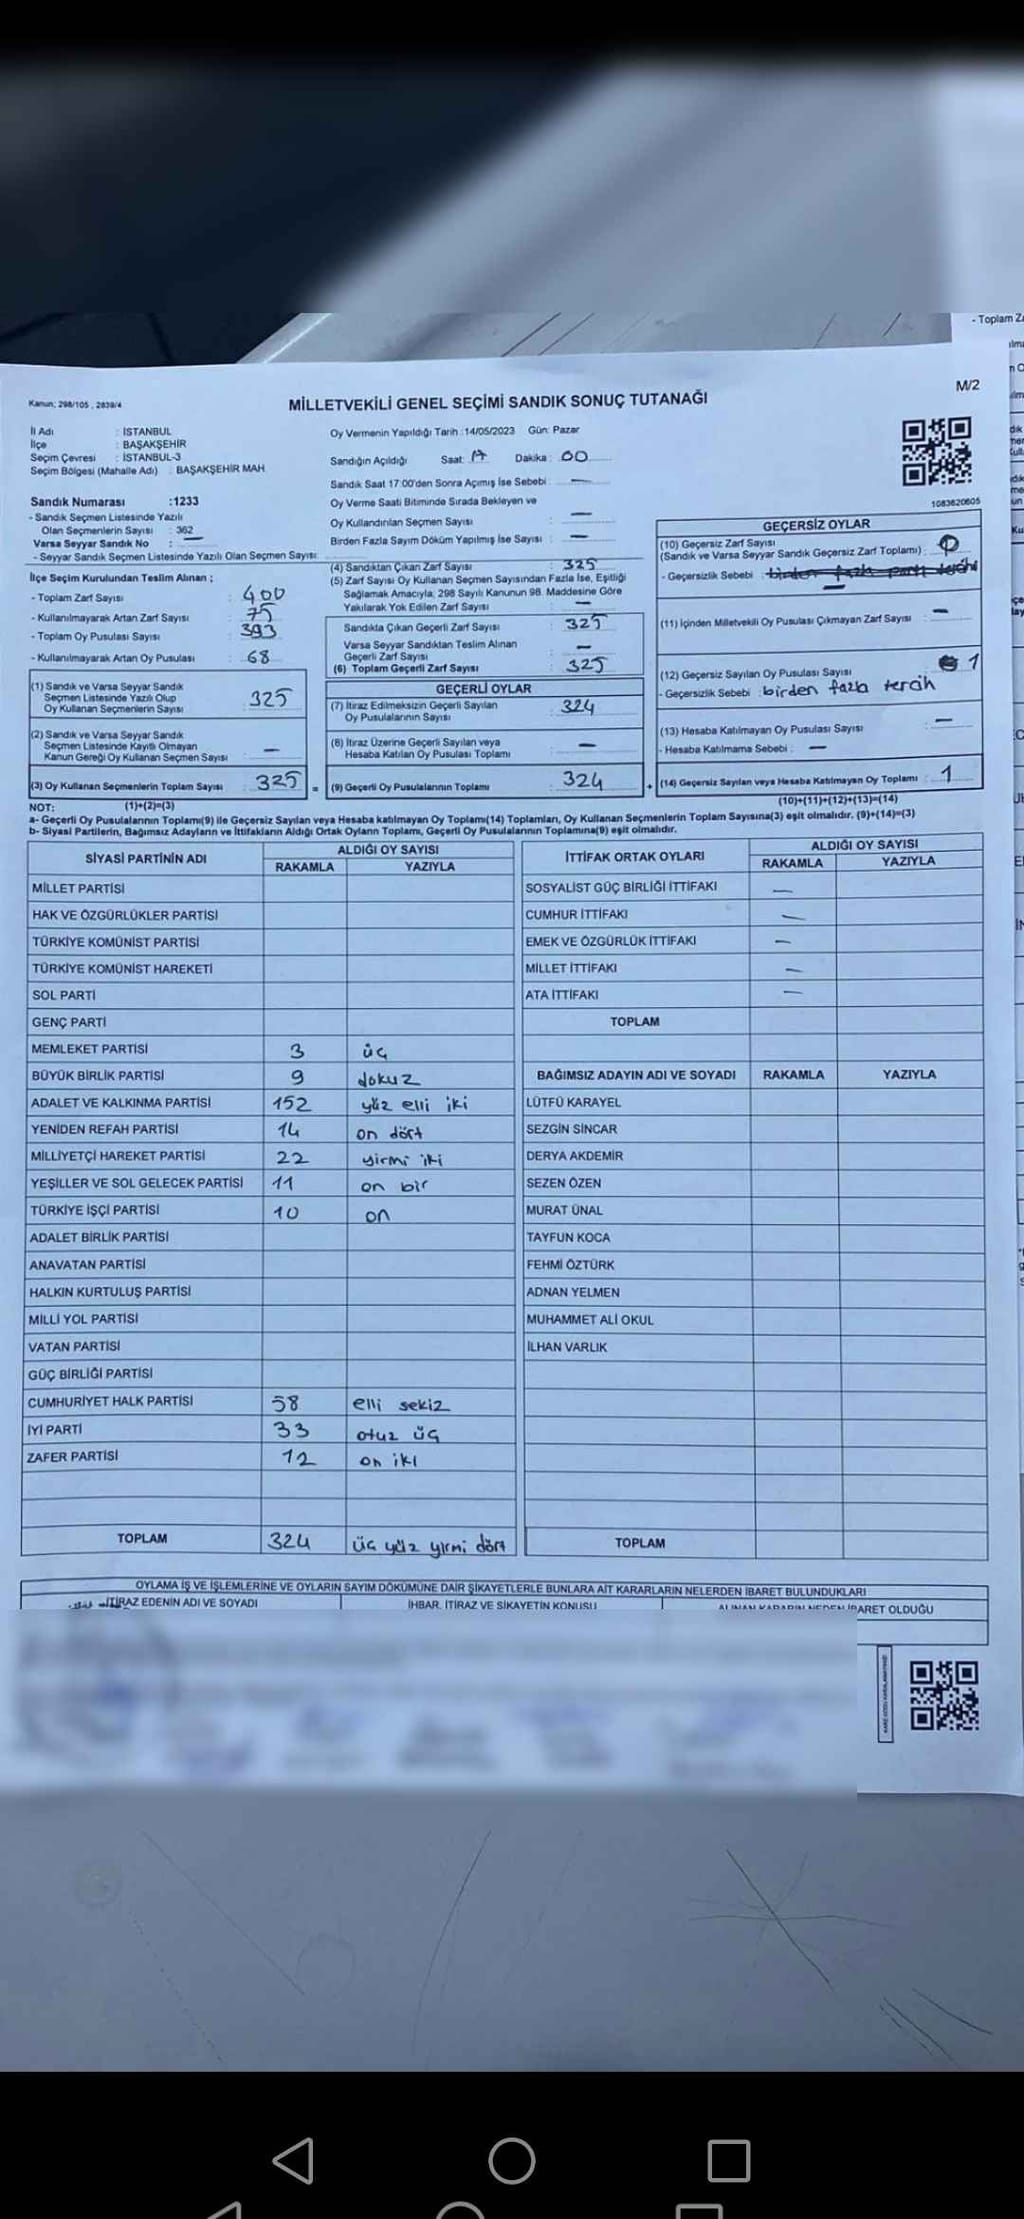 - Toplam Za
M/2
Kanun; 298/105 , 2839/4
MİLLETVEKİLİ GENEL SEÇİMİ SANDIK SONUÇ TUTANAĞI
İl Adı : İSTANBUL
İlçe : BAŞAKŞEHİR
Seçim Çevresi : İSTANBUL-3
Seçim Bölgesi (Mahalle Adı) : BAŞAKŞEHİR MAH
Sandık Numarası :1233
- Sandık Seçmen Listesinde Yazılı
Olan Seçmenlerin Sayısı : 362
Varsa Seyyar Sandık No : —
- Seyyar Sandık Seçmen Listesinde Yazılı Olan Seçmen Sayısı:
İlçe Seçim Kurulundan Teslim Alınan ;
- Toplam Zarf Sayısı : 400
- Kullanılmayarak Artan Zarf Sayısı : 75
- Toplam Oy Pusulası Sayısı : 393
- Kullanılmayarak Artan Oy Pusulası : 68
(1) Sandık ve Varsa Seyyar Sandık
Seçmen Listesinde Yazılı Olup
Oy Kullanan Seçmenlerin Sayısı : 325
(2) Sandık ve Varsa Seyyar Sandık
Seçmen Listesinde Kayıtlı Olmayan
Kanun Gereği Oy Kullanan Seçmen Sayısı : —
(3) Oy Kullanan Seçmenlerin Toplam Sayısı : 325 =
Oy Vermenin Yapıldığı Tarih :14/05/2023 Gün: Pazar
Sandığın Açıldığı Saat: 17 Dakika : 00
Sandık Saat 17:00'den Sonra Açımış İse Sebebi : —
Oy Verme Saati Bitiminde Sırada Bekleyen ve
Oy Kullandırılan Seçmen Sayısı : —
Birden Fazla Sayım Döküm Yapılmış İse Sayısı : —
(4) Sandıktan Çıkan Zarf Sayısı : 325
(5) Zarf Sayısı Oy Kullanan Seçmen Sayısından Fazla İse, Eşitliği
Sağlamak Amacıyla, 298 Sayılı Kanunun 98. Maddesine Göre
Yakılarak Yok Edilen Zarf Sayısı : —
Sandıkta Çıkan Geçerli Zarf Sayısı : 325
Varsa Seyyar Sandıktan Teslim Alınan
Geçerli Zarf Sayısı : —
(6) Toplam Geçerli Zarf Sayısı : 325
GEÇERLİ OYLAR
(7) İtiraz Edilmeksizin Geçerli Sayılan
Oy Pusulalarının Sayısı : 324
(8) İtiraz Üzerine Geçerli Sayılan veya
Hesaba Katılan Oy Pusulası Toplamı : —
(9) Geçerli Oy Pusulalarının Toplamı : 324 +
1083620605
GEÇERSİZ OYLAR
(10) Geçersiz Zarf Sayısı
(Sandık ve Varsa Seyyar Sandık Geçersiz Zarf Toplamı) : 0
- Geçersizlik Sebebi : birden fazla parti tercihi
—
(11) İçinden Milletvekili Oy Pusulası Çıkmayan Zarf Sayısı : —
(12) Geçersiz Sayılan Oy Pusulası Sayısı : 1
- Geçersizlik Sebebi : birden fazla tercih
(13) Hesaba Katılmayan Oy Pusulası Sayısı : —
- Hesaba Katılmama Sebebi : —
(14) Geçersiz Sayılan veya Hesaba Katılmayan Oy Toplamı : 1
NOT: (1)+(2)=(3)
(10)+(11)+(12)+(13)=(14)
a- Geçerli Oy Pusulalarının Toplamı(9) ile Geçersiz Sayılan veya Hesaba katılmayan Oy Toplamı(14) Toplamları, Oy Kullanan Seçmenlerin Toplam Sayısına(3) eşit olmalıdır. (9)+(14)=(3)
b- Siyasi Partilerin, Bağımsız Adayların ve İttifakların Aldığı Ortak Oyların Toplamı, Geçerli Oy Pusulalarının Toplamına(9) eşit olmalıdır.
SİYASİ PARTİNİN ADI
ALDIĞI OY SAYISI
RAKAMLA YAZIYLA
MİLLET PARTİSİ
HAK VE ÖZGÜRLÜKLER PARTİSİ
TÜRKİYE KOMÜNİST PARTİSİ
TÜRKİYE KOMÜNİST HAREKETİ
SOL PARTİ
GENÇ PARTİ
MEMLEKET PARTİSİ 3 üç
BÜYÜK BİRLİK PARTİSİ 9 dokuz
ADALET VE KALKINMA PARTİSİ 152 yüz elli iki
YENİDEN REFAH PARTİSİ 14 on dört
MİLLİYETÇİ HAREKET PARTİSİ 22 yirmi iki
YEŞİLLER VE SOL GELECEK PARTİSİ 11 on bir
TÜRKİYE İŞÇİ PARTİSİ 10 on
ADALET BİRLİK PARTİSİ
ANAVATAN PARTİSİ
HALKIN KURTULUŞ PARTİSİ
MİLLİ YOL PARTİSİ
VATAN PARTİSİ
GÜÇ BİRLİĞİ PARTİSİ
CUMHURİYET HALK PARTİSİ 58 elli sekiz
İYİ PARTİ 33 otuz üç
ZAFER PARTİSİ 12 on iki
TOPLAM 324 üç yüz yirmi dört
İTTİFAK ORTAK OYLARI
ALDIĞI OY SAYISI
RAKAMLA YAZIYLA
SOSYALİST GÜÇ BİRLİĞİ İTTİFAKI —
CUMHUR İTTİFAKI —
EMEK VE ÖZGÜRLÜK İTTİFAKI —
MİLLET İTTİFAKI —
ATA İTTİFAKI —
TOPLAM
BAĞIMSIZ ADAYIN ADI VE SOYADI RAKAMLA YAZIYLA
LÜTFÜ KARAYEL
SEZGİN SİNCAR
DERYA AKDEMİR
SEZEN ÖZEN
MURAT ÜNAL
TAYFUN KOCA
FEHMİ ÖZTÜRK
ADNAN YELMEN
MUHAMMET ALİ OKUL
İLHAN VARLIK
TOPLAM
OYLAMA İŞ VE İŞLEMLERİNE VE OYLARIN SAYIM DÖKÜMÜNE DAİR ŞİKAYETLERLE BUNLARA AİT KARARLARIN NELERDEN İBARET BULUNDUKLARI
İTİRAZ EDENİN ADI VE SOYADI
İHBAR, İTİRAZ VE ŞİKAYETİN KONUSU
ALINAN KARARIN NEDEN İBARET OLDUĞU